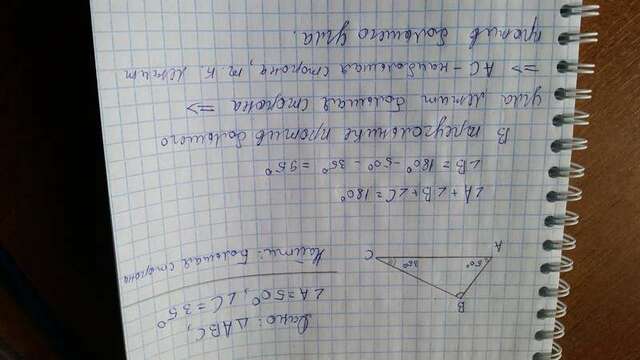 B
50°
35°
A
C
Дано: △ABC,
∠A=50°, ∠C=35°
Найти: Большая сторона
∠A+∠B+∠C=180°
∠B = 180° - 50° - 35° = 95°
В треугольнике против большего
угла лежит большая сторона =>
=> AC - наибольшая сторона, т.к. лежит
против большего угла.